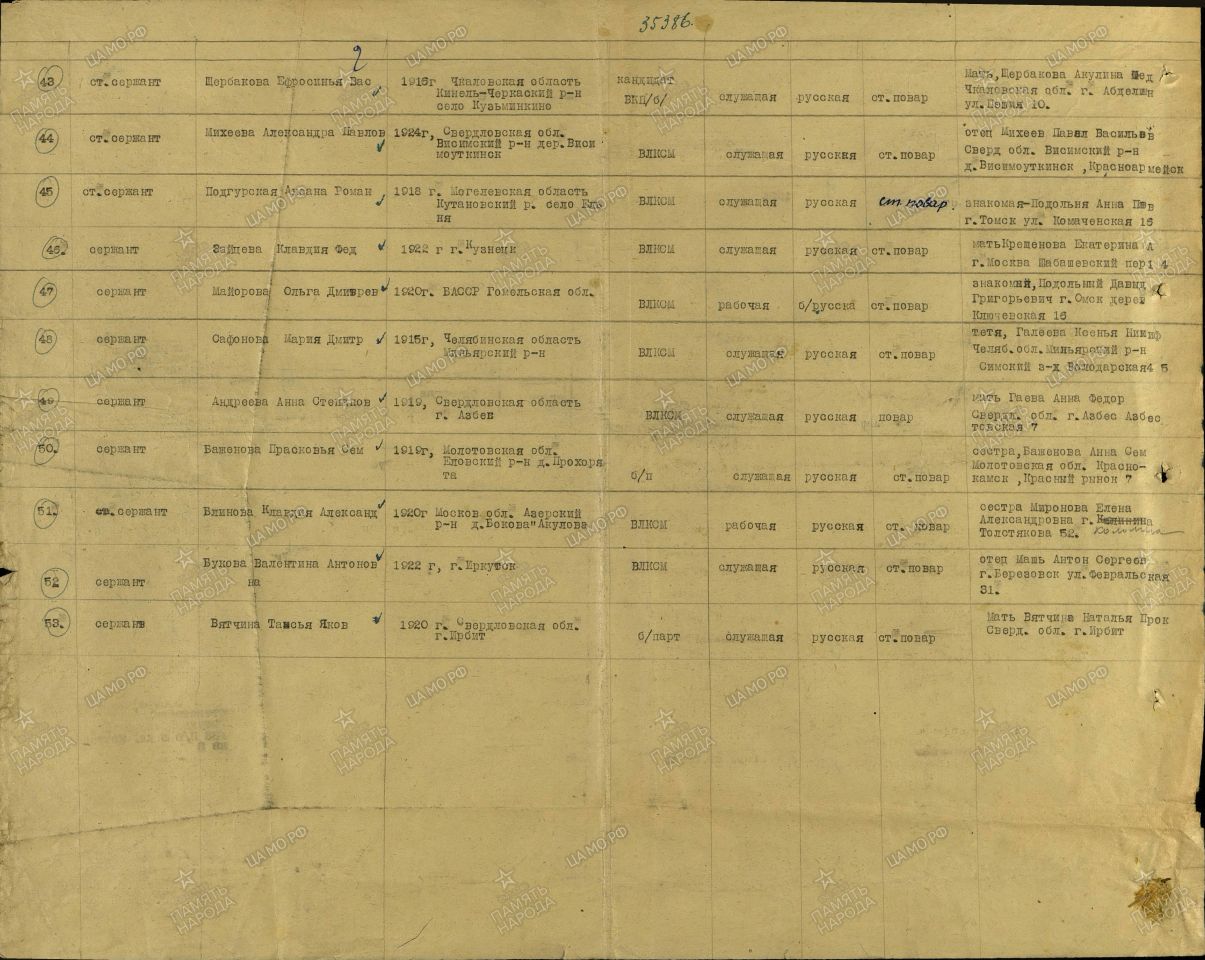 35386.
2
43 ст.сержант Щербакова Ефросинья Вас 1915г Чкаловская область кандидат Мать,Щербакова Акулина Фед
Кинель-Черкаский р-н ВКП/б/ служащая русская ст.повар Чкаловская обл. г. Абделин
село Кузьминкино ул.Пэвия 10.
44 ст.сержант Михеева Александра Павлов 1924г, Свердловская обл. отец Михеев Павел Васильев
Висимский р-н дер.Виси ВЛКСМ служащая русская ст.повар Сверд обл. Висимский р-н
моуткинск д.Висимоуткинск ,Красноармейск
45 ст.сержант Подгурская Роман 1918 г. Могелевская область ВЛКСМ служащая русская ст повар знакомая-Подольня Анна
Кутановский р. село г.Томск ул. Комаченская 16
ня
46. сержант Зайцева Клавдия Фед 1922 г г.Кузнецк ВЛКСМ служащая русская ст.повар матьКрещенова Екатерина А
г.Москва Шабашевский пер1 4
47 сержант Майорова Ольга Дмитрев 1920г. БАССР Гомельская обл. ВЛКСМ рабочая б/русска ст.повар знакомий,Подольний Давид
Григорьевич г.Омск дерев
Ключевская 16
48 сержант Сафонова Мария Дмитр 1915г, Челябинская область ВЛКСМ служащая русская ст.повар тетя, Галеева Ксенья Никиф
Миньярский р-н Челяб.обл.Миньярский р-н
Симский з-х Володарская4 5
49 сержант Андреева Анна Степанов 1919, Свердловская область ВЛКСМ служащая русская повар мать Гаева Анна Федор
г. Азбев Свердл. обл. г.Азбес Азбес
товская 7
50. сержант Баженова Прасковья Сем 1919г, Молотовская обл. б/п служащая русская ст.повар сестра,Баженова Анна Сем
Еловский р-н д.Прохоря Молотовская обл. Красно-
та камск ,Красный рынок 7
51. ст.сержант Блинова Клавдия Александ 1920г Москов обл. Азерский ВЛКСМ рабочая русская ст. повар сестра Миронова Елена
р-н д.Бокова"Акулова Александровна г.Калинина
Толстякова 52. Коломна
52 сержант Букова Валентина Антонов 1922 г, г.Иркуток ВЛКСМ служащая русская ст.повар отец Машь Антон Сергеев
на г.Березовск ул.Февральская
31.
53. сержанв Вятчина Таисья Яков 1920 г. Свердловская обл. б/парт служащая русская ст.повар Мать Вятчина Наталья Прок
г.Ирбит Сверд. обл. г.Ирбит